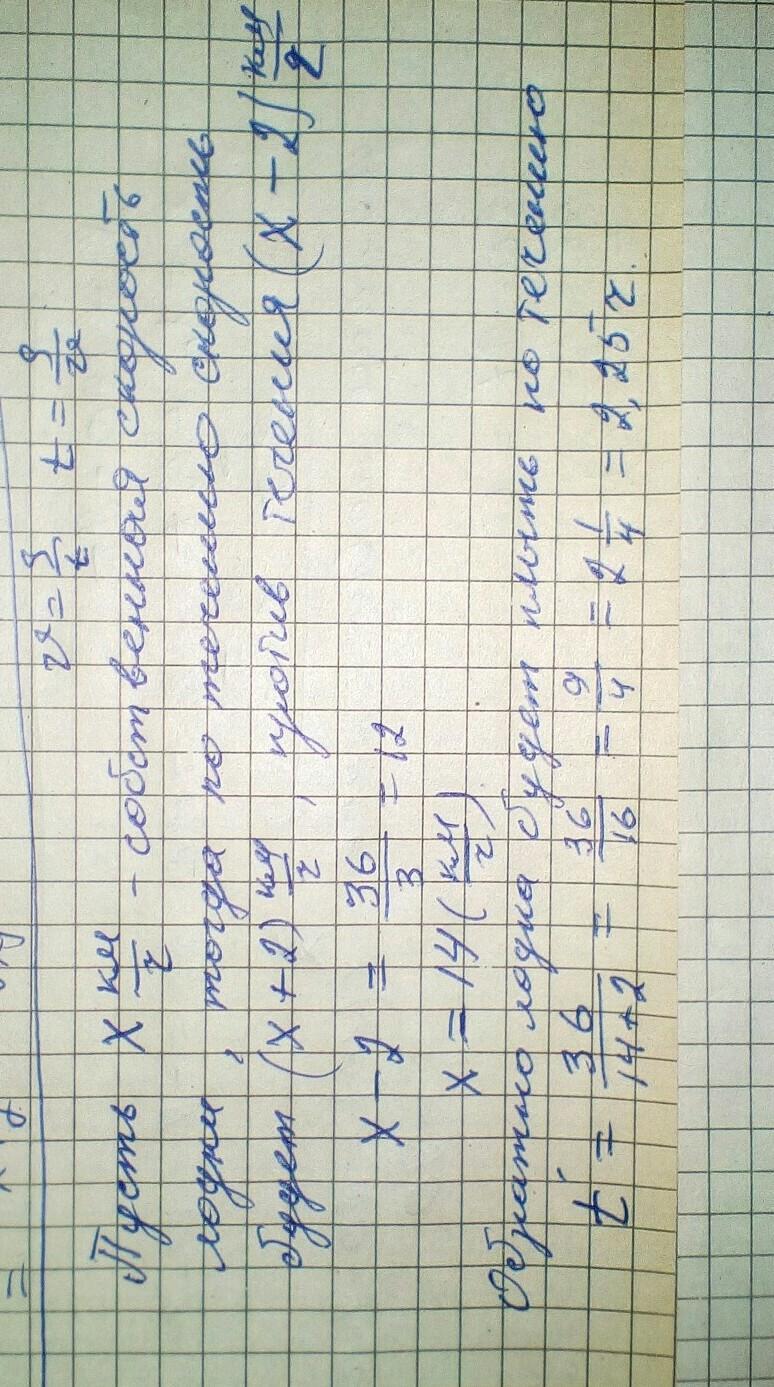 v = S/t t = S/v
Пусть x км/ч - собственная скорость
лодки, тогда по течению скорость
будет (x + 2) км/ч, против течения (x - 2) км/ч
x - 2 = 36/3 = 12
x = 14 (км/ч)
Обратно лодка будет плыть по течению
t = 36/14+2 = 36/16 = 9/4 = 2 1/4 = 2,25 ч.